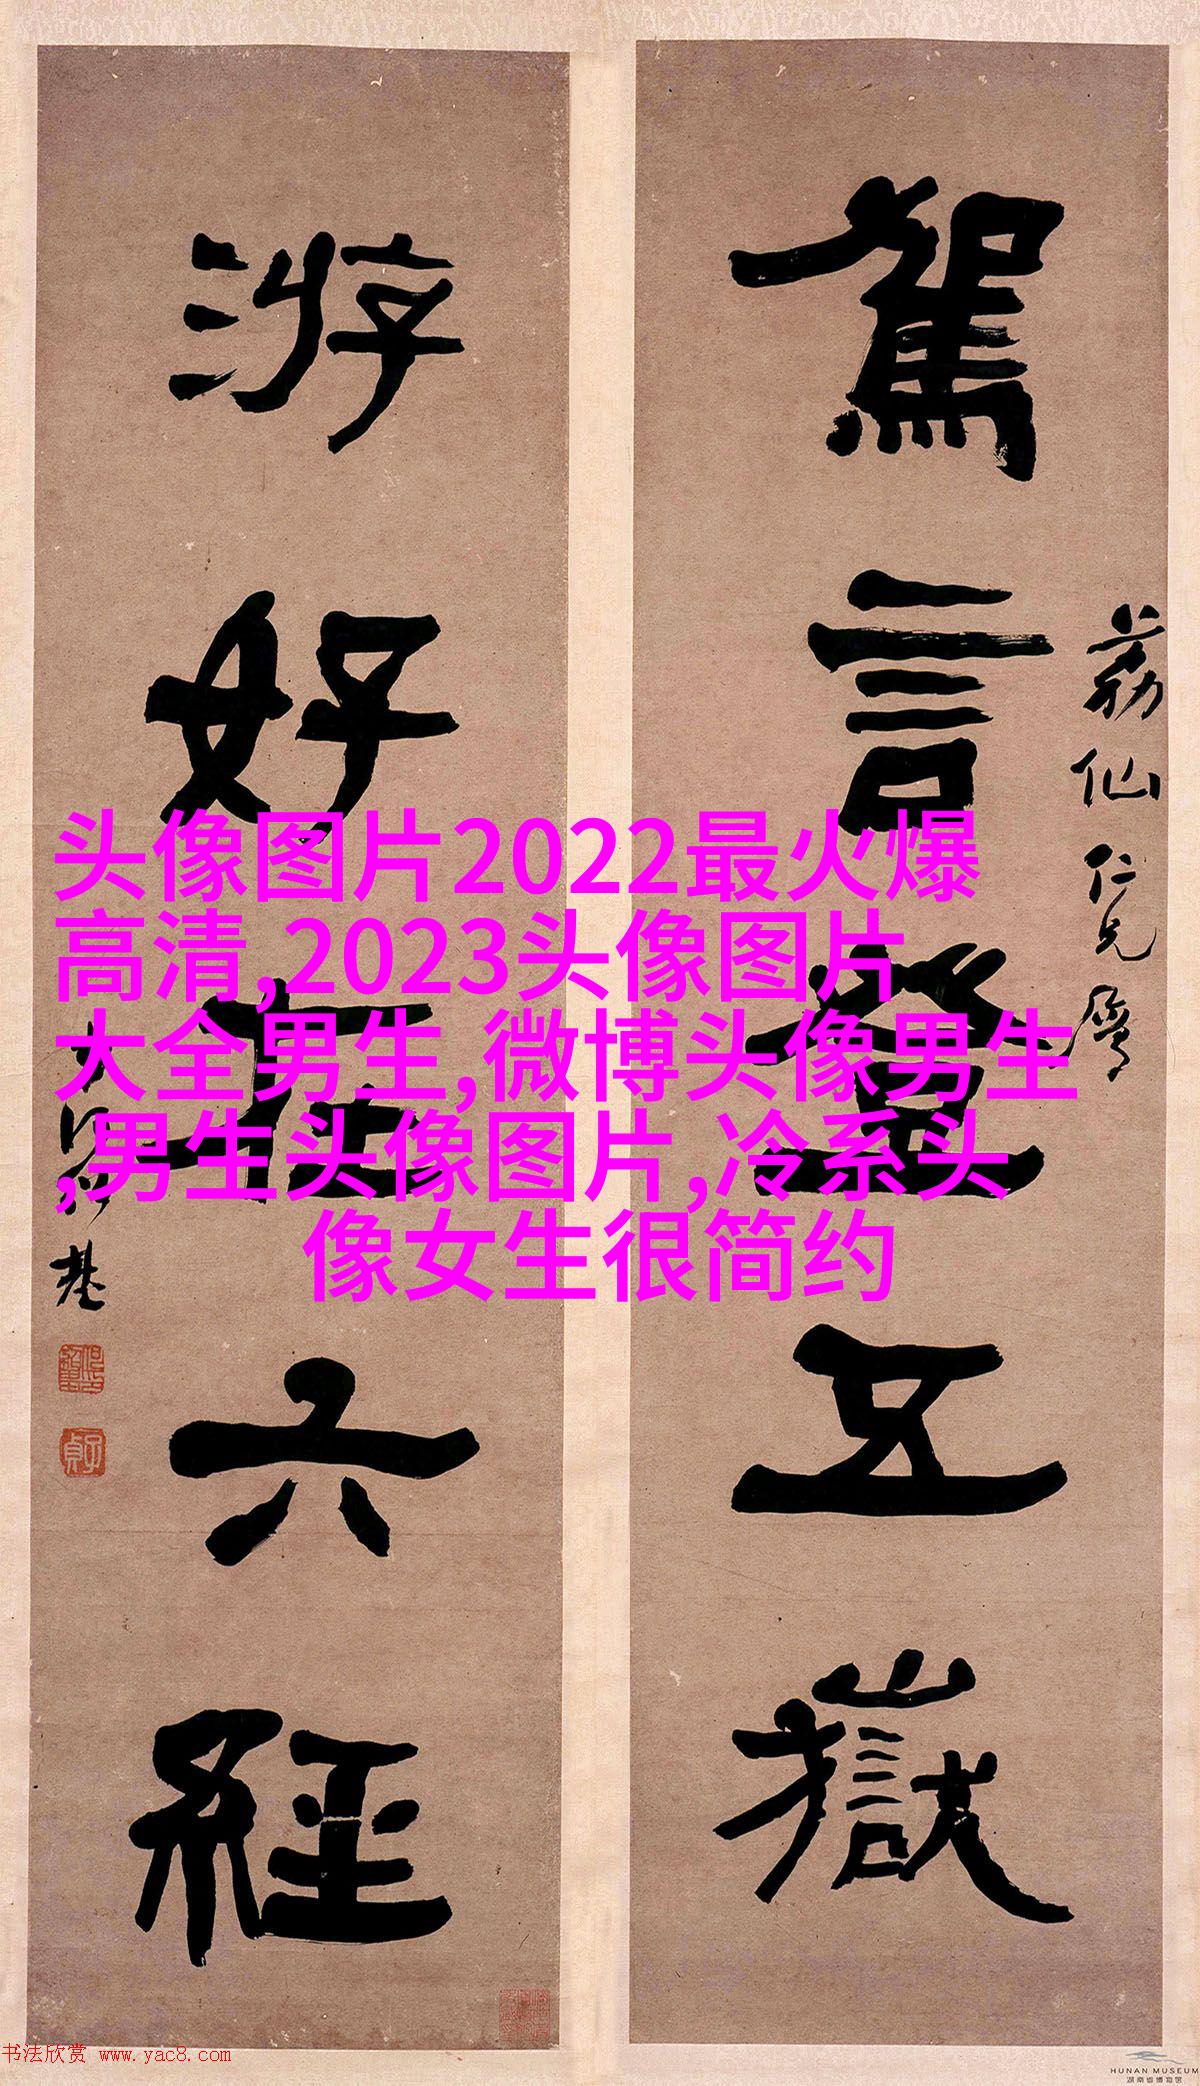 駕言登五嶽
荔仙仁兄屬
游好在六經
何紹基
头像图片2022最火爆
高清,2023头像图片
大全男生,微博头像男生
,男生头像图片,冷系头
像女生很简约
子貞
书法欣赏 www.yac8.com
HUNAN MUSEUM
湖南省博物馆